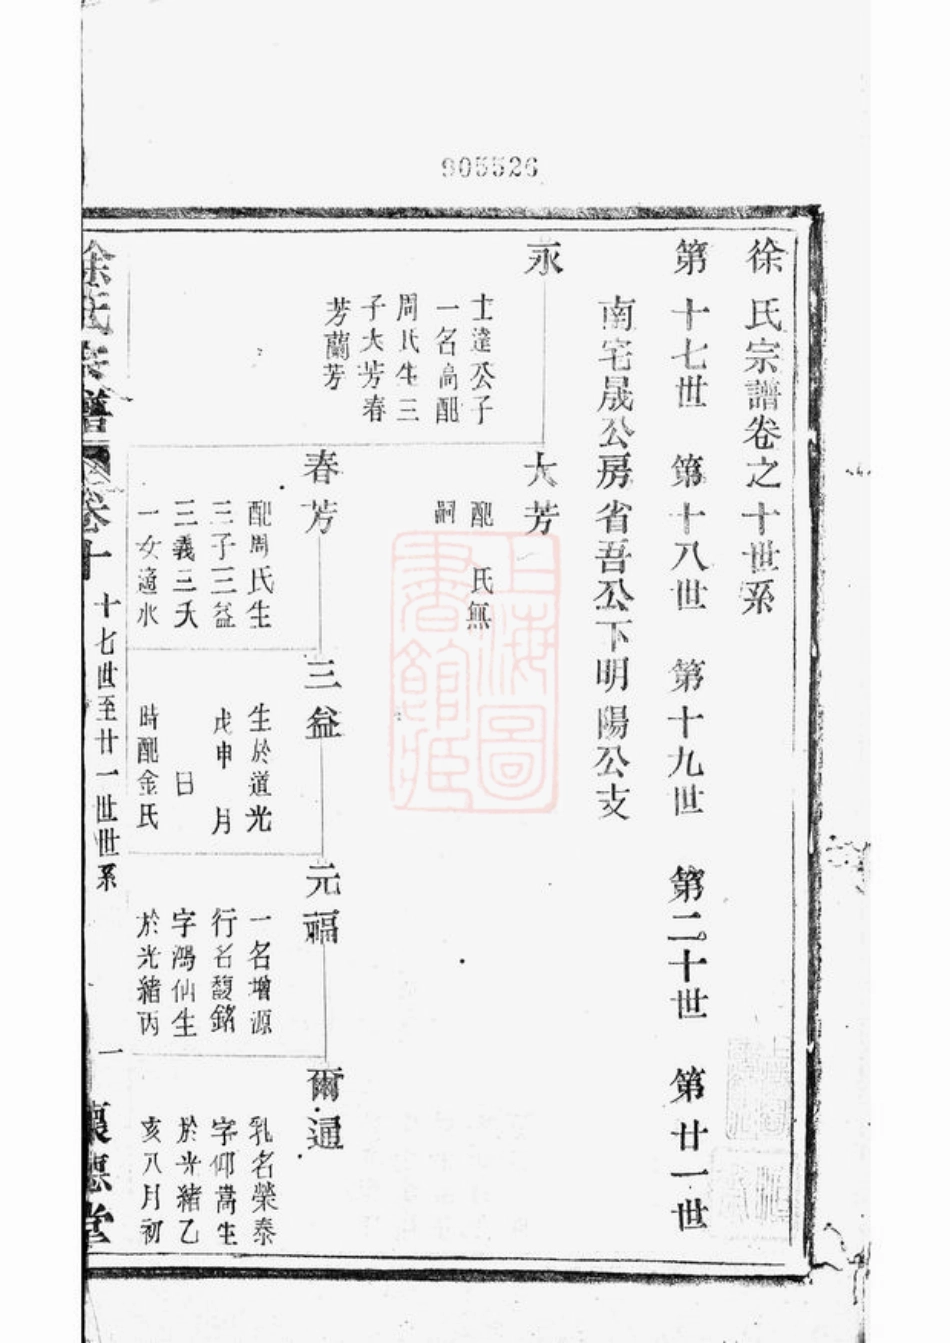 905526
徐氏宗譜卷之十世系
第十七世 第十八世 第十九世 第二十世 第廿一世
南宅晟公房省吾公下明陽公支
永
士達公子
一名高配
周氏生三
子大芳春
芳蘭芳
大芳
配 氏無
嗣
春芳
配周氏生
三子三益
三義三夭
一女適水
三益
生於道光
戊申 月
日
時配金氏
元福
一名增源
行名馥銘
字鴻仙生
於光緒丙
爾通
乳名榮泰
字仰蒿生
於光緒乙
亥八月初
徐氏宗譜 卷十 十七世至廿一世世系 一 懷德堂
上海圖書館藏